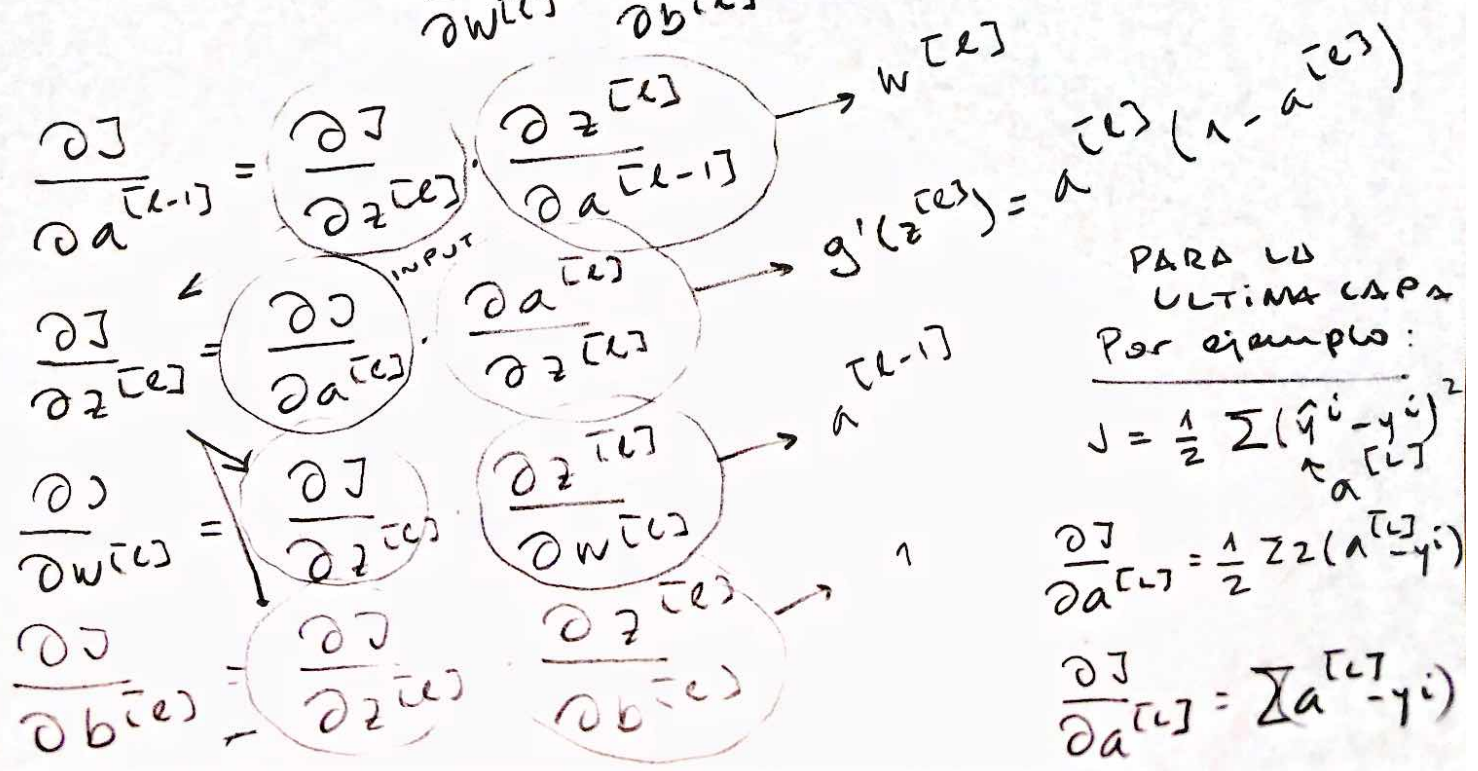 ∂w[l] ∂b[l]
∂J/∂a[l-1] = ∂J/∂z[l] · ∂z[l]/∂a[l-1] → w[l]
∂J/∂z[l] = ∂J/∂a[l] · ∂a[l]/∂z[l] → g'(z[l]) = a[l](1 - a[l])
INPUT
∂J/∂w[l] = ∂J/∂z[l] · ∂z[l]/∂w[l] → a[l-1]
∂J/∂b[l] = ∂J/∂z[l] · ∂z[l]/∂b[l] → 1
PARA LA
ULTIMA CAPA
Por ejemplo:
J = 1/2 Σ(ŷⁱ - yⁱ)²
↑a[L]
∂J/∂a[L] = 1/2 Σ2(a[L] - yⁱ)
∂J/∂a[L] = Σa[L] - yⁱ)